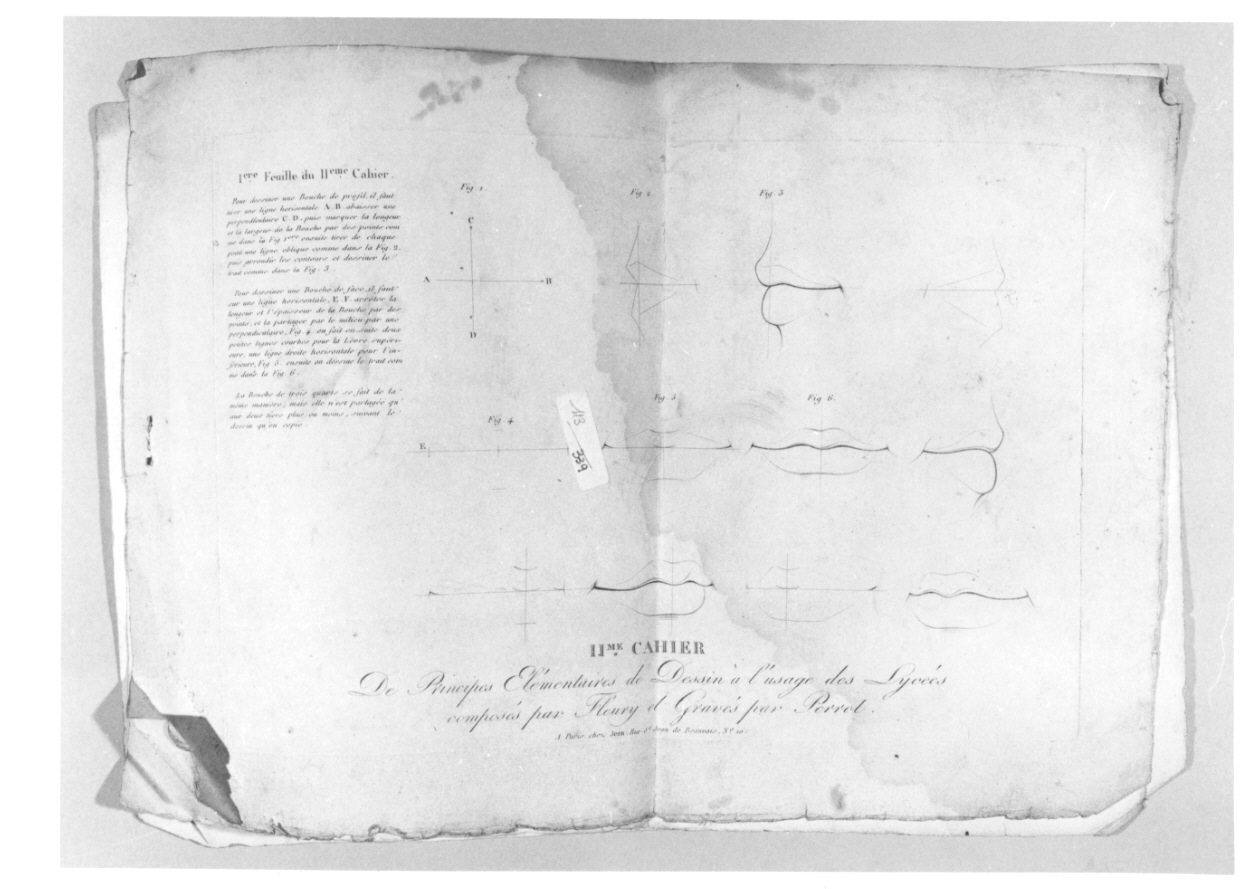 1ere Feuille du IIeme Cahier.
Pour dessiner une Bouche de profil, il faut
tirer une ligne horisontale A.B. abaisser une
perpendiculaire C.D. puis marquer la longeur
et la largeur de la Bouche par des points com
me dans la Fig 1ere ensuite tirer de chaque
point une ligne oblique comme dans la Fig. 2.
puis arrondir les contours et dessiner le
trait comme dans la Fig. 3.
Pour dessiner une Bouche de face, il faut
sur une ligne horisontale, E.F. arrêter la
longeur et l'épaisseur de la Bouche par des
points, et la partager par le milieu par une
perpendiculaire, Fig 4. on fait en suite deux
petites lignes courbes pour la Lèvre supéri-
eure, une ligne droite horisontale pour l'in-
férieure, Fig 5. ensuite on dessine le trait com
me dans la Fig 6.
La Bouche de trois quarts se fait de la
même manière, mais elle n'est partagée qu'
aux deux tiers plus ou moins, suivant le
dessin qu'on copie.
Fig. 1.
C
A
B
D
Fig 2.
Fig. 3
Fig. 4
E
Fig. 5
Fig. 6.
AB
389
IIME CAHIER
De Principes Elémentaires de Dessin à l'usage des Lycées
composés par Fleury et Gravés par Perrot.
A Paris chez Jean, Rue St Jean de Beauvais, No 10.